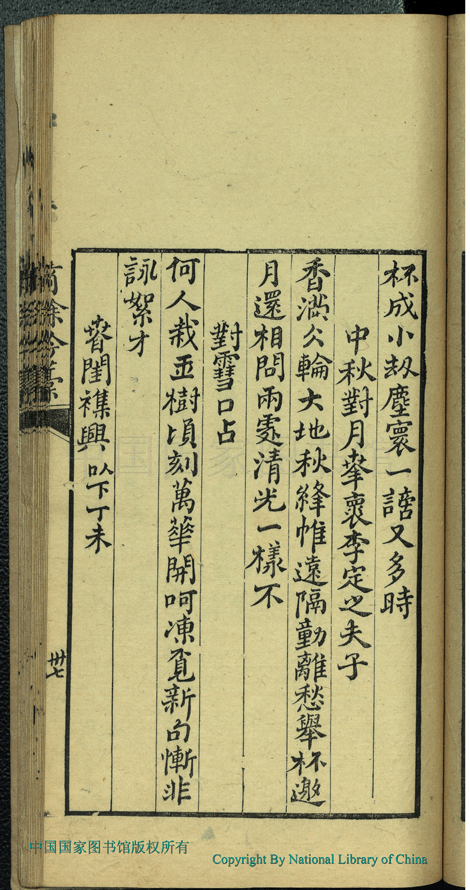 杯成小劫塵寰一謫又多時
中秋對月奉褱李定之夫子
香滿仌輪大地秋絳帷遠隔動離愁舉杯邀
月還相問兩處清光一樣不
對雪口占
何人栽玉樹頃刻萬華開呵凍覓新句慚非
詠絮才
春閨襍興 以下丁未
餘吟藁
卅七
中国国家图书馆版权所有
Copyright By National Library of China